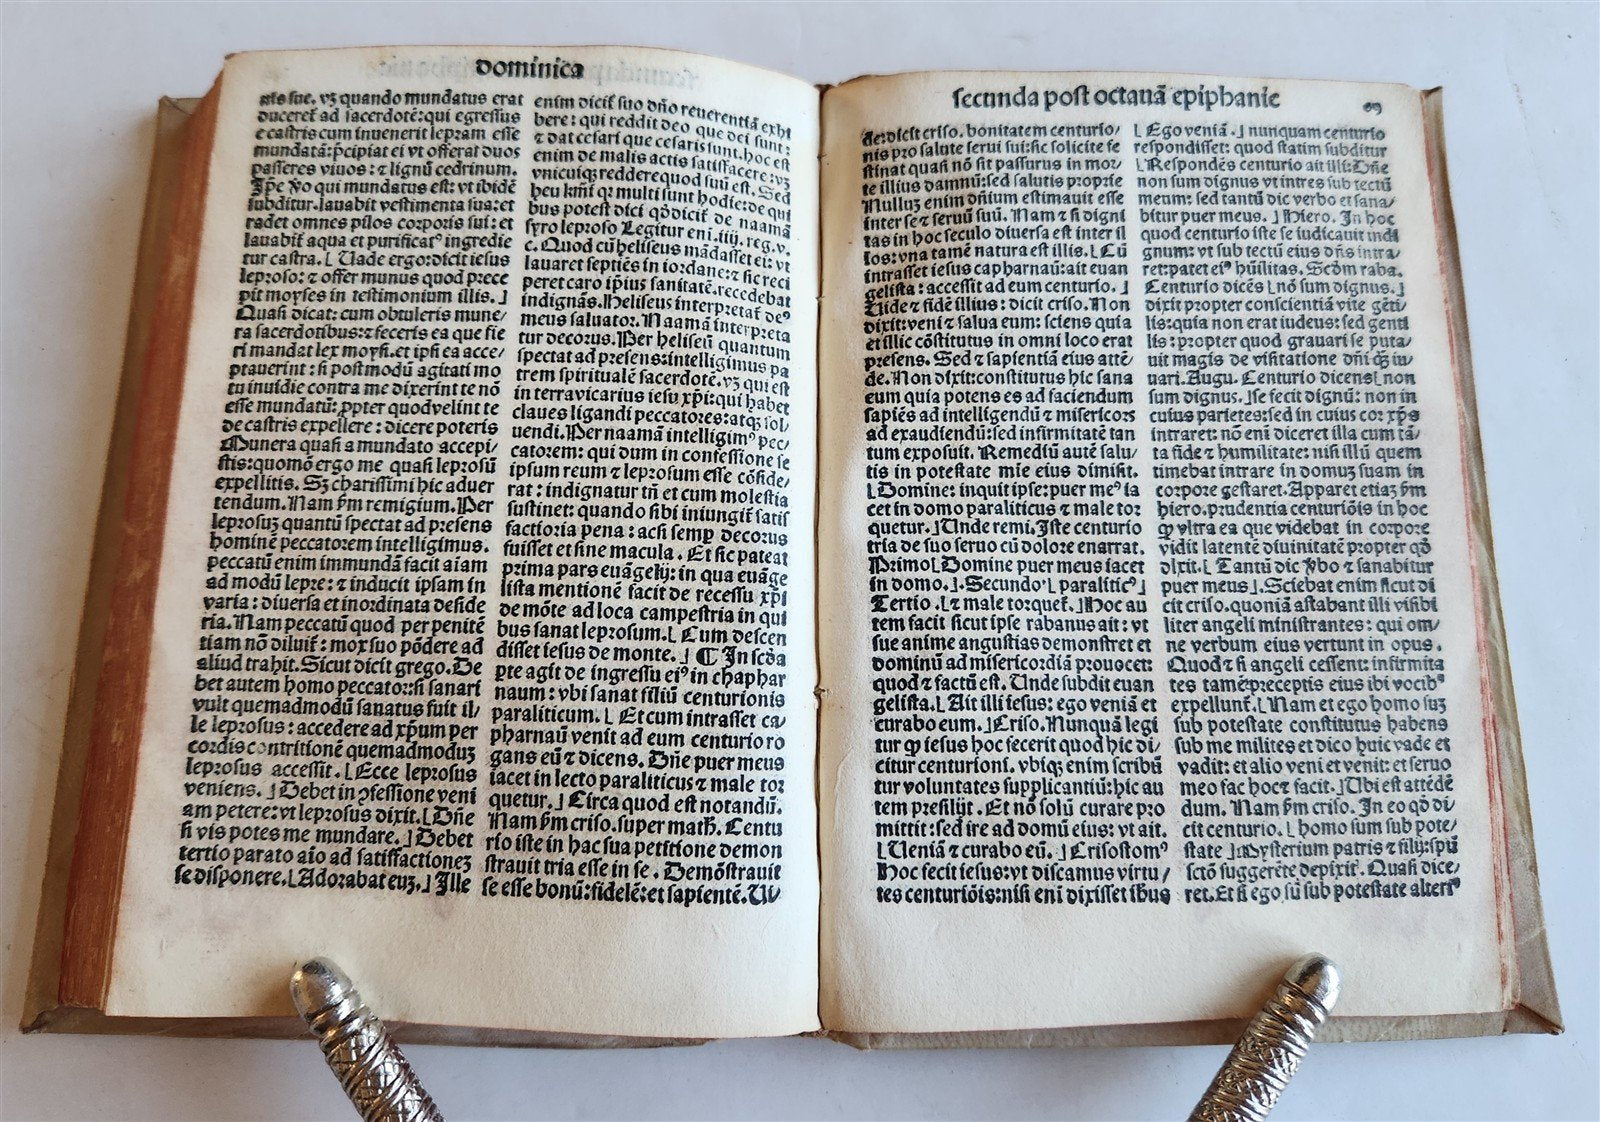 dominica
als sue. vꝫ quando mundatus erat
ducereť ad sacerdotē: qui egressus
e castris cum inuenerit lepram esse
mundatā: p̄cipiat ei vt offerat duos
passeres viuos: ⁊ lignū cedrinum.
Ip̄e ꝟo qui mundatus est: vt ibidē
subditur. lauabit vestimenta sua: et
radet omnes pilos corporis sui: et
lauabiť aqua et purificatꝰ ingredie
tur castra. ⌊ Uade ergo: dicit iesus
leproso: ⁊ offer munus quod prece
pit moyses in testimonium illis. ⌋
Quasi dicat: cum obtuleris mune/
ra sacerdotibus: ⁊ feceris ea que fie
ri mandat lex moysi. et ipsi ea acce/
ptauerint: si postmodū agitati mo
tu inuidie contra me dixerint te nō
esse mundatū: ꝓpter quod velint te
de castris expellere: dicere poteris
Munera quasi a mundato accepi/
stis: quomō ergo me quasi leprosū
expellitis. Sꝫ charissimi hic aduer
tendum. Nam ẜm remigium. Per
leprosuꝫ quantū spectat ad presens
hominē peccatorem intelligimus.
peccatū enim immundā facit aīam
ad modū lepre: ⁊ inducit ipsam in
varia: diuersa et inordinata deside
ria. Nam peccatū quod per penitē
tiam nō diluiť: mox suo pōdere ad
aliud trahit. Sicut dicit grego. De
bet autem homo peccator: si sanari
vult quemadmodū sanatus fuit il/
le leprosus: accedere ad xp̄um per
cordis contritionē quemadmoduꝫ
leprosus accessit. ⌊Ecce leprosus
veniens. ⌋Debet in ꝯfessione veni
am petere: vt leprosus dixit. ⌊Dn̄e
si vis potes me mundare. ⌋Debet
tertio parato aīo ad satisfactioneꝫ
se disponere. ⌊Adorabat euꝫ. ⌋ Ille
enim diciť suo dn̄o reuerentiā exhi
bere: qui reddit deo que dei sunt:
⁊ dat cesari que cesaris sunt. hoc est
enim de malis actis satisfacere: vꝫ
vnicuiqꝫ reddere quod suū est. Sed
heu km̄i qꝛ multi sunt hodie: de qui
bus potest dici qd̄ diciť de naamā
syro leproso Legitur eni. iiij. reg. v.
c. Quod cū heliseus mādasset ei: vt
lauaret septiēs in iordane: ⁊ sic reci
peret caro ip̄ius sanitatē. recedebat
indignās. Heliseus interpretať deꝰ
meus saluator. Naamā interpreta
tur decorus. Per heliseū quantum
spectat ad presens: intelligimus pa
trem spiritualē sacerdotē. vꝫ qui est
in terra vicarius iesu xp̄i: qui habet
claues ligandi peccatores: atqꝫ sol/
uendi. Per naamā intelligimꝰ pec/
catorem: qui dum in confessione se
ipsum reum ⁊ leprosum esse cōfide/
rat: indignatur tn̄ et cum molestia
sustinet: quando sibi iniungiť satis
factoria pena: acsi semp̱ decorus
fuisset et sine macula. Et sic pateat
prima pars euāgelij: in qua euāge
lista mentionē facit de recessu xp̄i
de mōte ad loca campestria in qui
bus sanat leprosum. ⌊ Cum descen
disset iesus de monte. ⌋ ¶ In scd̄a
ꝑte agit de ingressu eiꝰ in chaphar
naum: vbi sanat filiū centurionis
paraliticum. ⌊ Et cum intrasset ca/
pharnaū venit ad eum centurio ro
gans eū ⁊ dicens. Dn̄e puer meus
iacet in lecto paraliticus ⁊ male toꝛ
quetur. ⌋ Circa quod est notandū.
Nam ẜm criso. super math. Centu
rio iste in hac sua petitione demon
strauit tria esse in se. Demōstrauit
se esse bonū: fidelē: et sapientē. Ui/
secunda post octauā epiphanie
de: dicit criso. bonitatem centurio/
nis pro salute serui sui: sic solicite fe
stinat quasi nō sit passurus in mor/
te illius damnū: sed salutis proprie
Nulluꝫ enim dn̄ium estimauit esse
inter se ⁊ seruū suū. Nam ⁊ si digni
tas in hoc seculo diuersa est inter il
los: vna tamē natura est illis. ⌊ Cū
intrasset iesus capharnaū: ait euan
gelista: accessit ad eum centurio. ⌋
Uide ⁊ fidē illius: dicit criso. Non
dixit: veni ⁊ salua eum: sciens quia
et illic cōstitutus in omni loco erat
presens. Sed ⁊ sapientiā eius attē/
de. Non dixit: constitutus hic sana
eum quia potens es ad faciendum
sapiēs ad intelligendū ⁊ misericoꝛs
ad exaudiendū: sed infirmitatē tan
tum exposuit. Remediū autē salu/
tis in potestate mie eius dimisit.
⌊Domine: inquit ipse: puer meꝰ ia
cet in domo paraliticus ⁊ male toꝛ
quetur. ⌋Unde remi. Iste centurio
tria de suo seruo cū dolore enarrat.
Primo ⌊Domine puer meus iacet
in domo. ⌋. Secundo ⌊ paraliticꝰ ⌋
Tertio. ⌊⁊ male torqueť. ⌋Hoc au
tem facit sicut ipse rabanus ait: vt
sue anime angustias demonstret et
dominū ad misericordiā prouocet:
quod ⁊ factū est. Unde subdit euan
gelista. ⌊Ait illi iesus: ego veniā et
curabo eum. ⌋Criso. Nunquā legi
tur ꝙ iesus hoc fecerit quod hic di/
citur centurioni. vbiqꝫ enim scribū
tur voluntates supplicantiū: hic au
tem presilijt. Et nō solū curare pro
mittit: sed ire ad domū eius: vt ait.
⌊Ueniā ⁊ curabo eū. ⌋Crisostomꝰ
Hoc fecit iesus: vt discamus virtu/
tes centuriōis: nisi eni dixisset ihus
⌊Ego veniā. ⌋ nunquam centurio
respondisset: quod statim subditur
⌊Respondēs centurio ait illi: Dn̄e
non sum dignus vt intres sub tectū
meum: sed tantū dic verbo et sana/
bitur puer meus. ⌋ Hiero. In hoc
quod centurio iste se iudicauit indi
gnum: vt sub tectū eius dn̄s intra/
ret: patet eiꝰ hūilitas. Scd̄m raba.
Centurio dicēs ⌊nō sum dignus. ⌋
dixit propter conscientiā vite gēti/
lis: quia non erat iudeus: sed genti
lis: propter quod grauari se puta/
uit magis de visitatione dn̄i q̄ꝫ iu/
uari. Augu. Centurio dicens⌊non
sum dignus. ⌋se fecit dignū: non in
cuius parietes: sed in cuius cor xp̄s
intraret: nō eni diceret illa cum tā/
ta fide ⁊ humilitate: nisi illū quem
timebat intrare in domuꝫ suam in
corpore gestaret. Apparet etiaꝫ ẜm
hiero. prudentia centuriōis in hoc
ꝙ vltra ea que videbat in corpore
vidit latentē diuinitatē propter qd̄
dixit. ⌊ Tantū dic ꝟbo ⁊ sanabitur
puer meus ⌋. Sciebat enim sicut di
cit criso. quoniā astabant illi visibi
liter angeli ministrantes: qui om/
ne verbum eius vertunt in opus.
Quod ⁊ si angeli cessent: infirmita
tes tamē preceptis eius ibi vocibꝰ
expellunť. ⌊Nam et ego homo suꝫ
sub potestate constitutus habens
sub me milites et dico huic vade et
vadit: et alio veni et venit: et seruo
meo fac hoc ⁊ facit. ⌋Ubi est attēdē
dum. Nam ẜm criso. In eo qd̄ di/
cit centurio. ⌊ homo sum sub pote/
state ⌋mysterium patris ⁊ filij: sp̄ū
sctō suggerēte depixit. Quasi dice/
ret. Et si ego sū sub potestate alteriꝰ